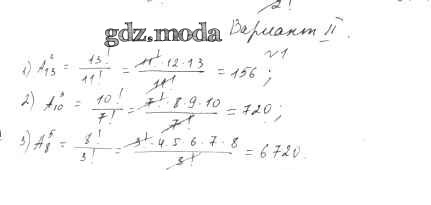 2!
gdz.moda Вариант II.
№1
1) A²₁₃ = 13!/11! = 11!·12·13/11! = 156;
2) A³₁₀ = 10!/7! = 7!·8·9·10/7! = 720;
3) A⁵₈ = 8!/3! = 3!·4·5·6·7·8/3! = 6720.